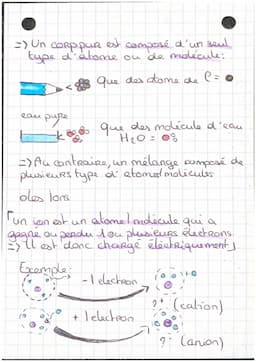 =) Un corp pur est composé d'un seul
type d'atome ou de molécule:
Que des atome de C =
eau pure
Que des molécule d'eau
H2O =
=) Au contraire, un mélange composé de
plusieurs type d'atome/molécules
des Ions
⌈un ion est un atome/molécule qui a
gagné ou perdu 1 ou plusieurs électrons
=) Il est donc chargé électriquement⌋
Exemple:
-1 electron
?+ (cation)
+1 electron
?- (anion)